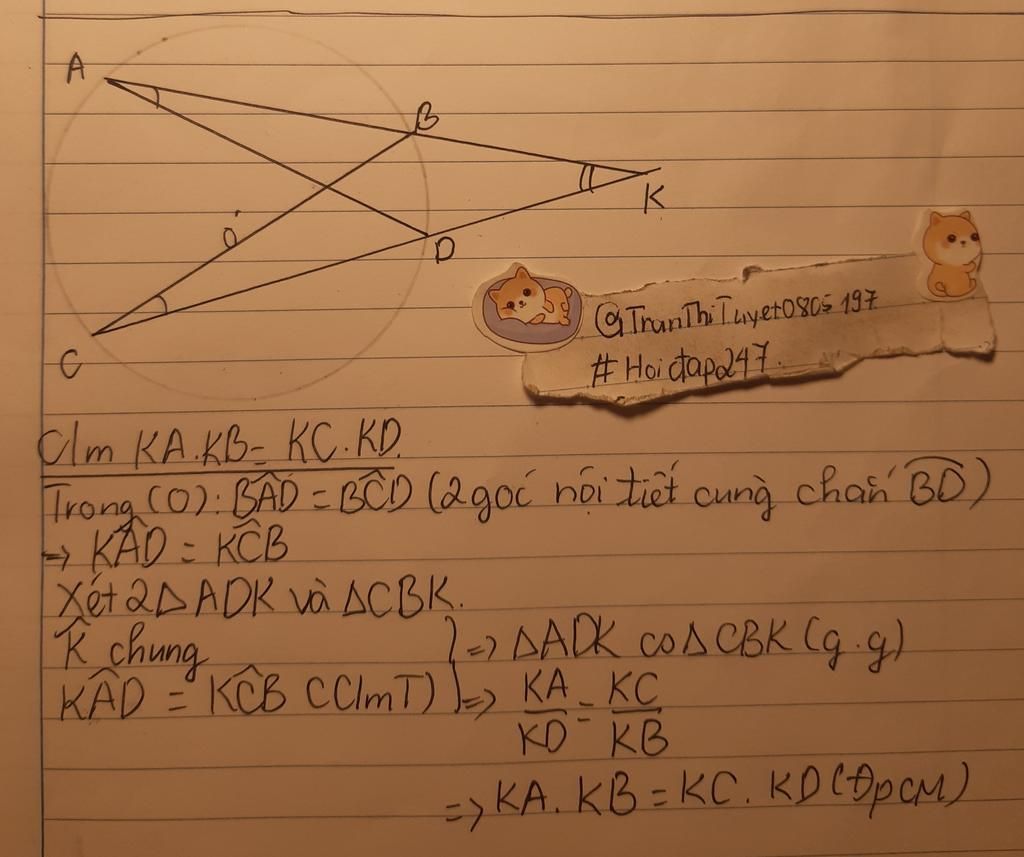 A
B
K
O
D
C
@TranThiTuyet0805197
#Hoidap247.
C/m KA.KB = KC.KD.
Trong (O): BÂD = BĈD (2 góc nội tiết cùng chắn BD)
=> KÂD = KĈB
Xét 2Δ ADK và ΔCBK.
K̂ chung } => ΔADK ∽ ΔCBK (g.g)
KÂD = KĈB (C/mT) } => KA/KD = KC/KB
=> KA. KB = KC. KD (ĐpCM)